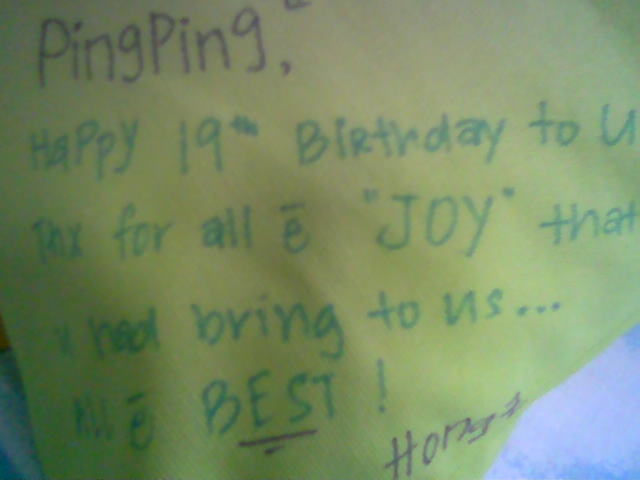 PingPing,
Happy 19th Birthday to U
Thx for all ē "JOY" that
u had bring to us...
All ē BEST!